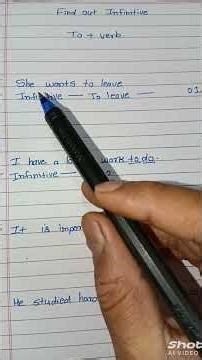 Find out Infinitive
To + verb
She wants to leave
Infinitive — To leave —
I have a work to do
Infinitive —
It is
He studied hard
Shot
AI VIDEO